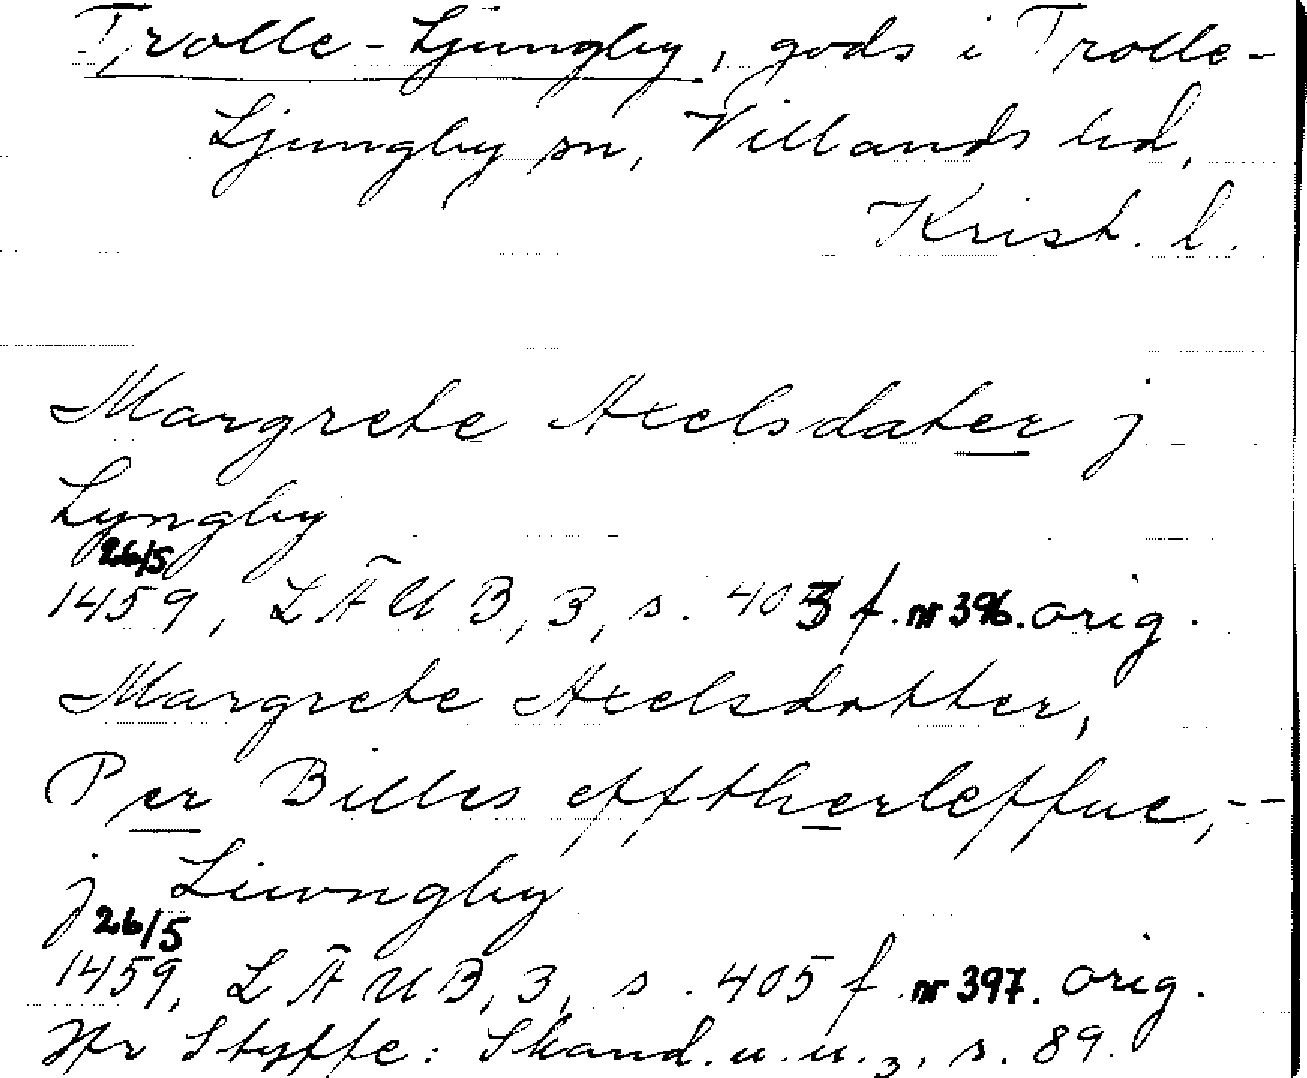 Trolle-Ljungby, gods i Trolle-
Ljungby sn, Villands hd,
Krist. l.
Margrete Axelsdater j
Lyngby
26/5
1459, LÄUB, 3, s. 403 f. nr 396. orig.
Margrete Axelsdotter,
Per Billes efftherleffue, --
j Liwngby
26/5
1459, LÄUB, 3, s. 405 f. nr 397. orig.
Jfr Styffe: Skand. u. u. 3, s. 89.